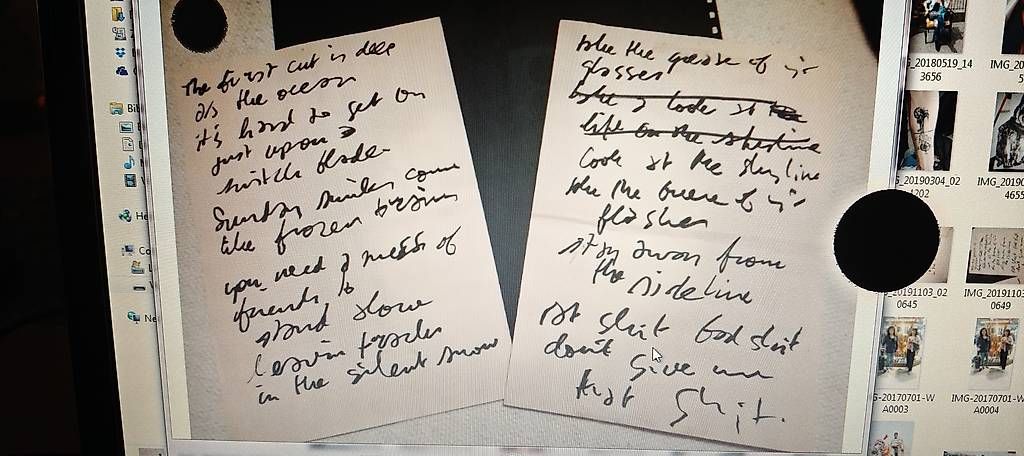 The first cut is deep
as the ocean
it's hard to get on
just upon a
switch blade
Sunday smiles come
like frozen
you need a mess of
friends to
stand alone
leavin tracks
in the silent snow
take the of yr
glasses
take a look at the
life on the
look at the skyline
take the of yr
flashes
stay away from
the sideline
shit God shit
don't give me
that shit.
_20180519_14
3656
IMG_20
_20190304_02
4202
IMG_2019
4655
_20191103_02
0645
IMG_20191103
0649
G-20170701-W
A0003
IMG-20170701-W
A0004
Bib
He
Co
Ne